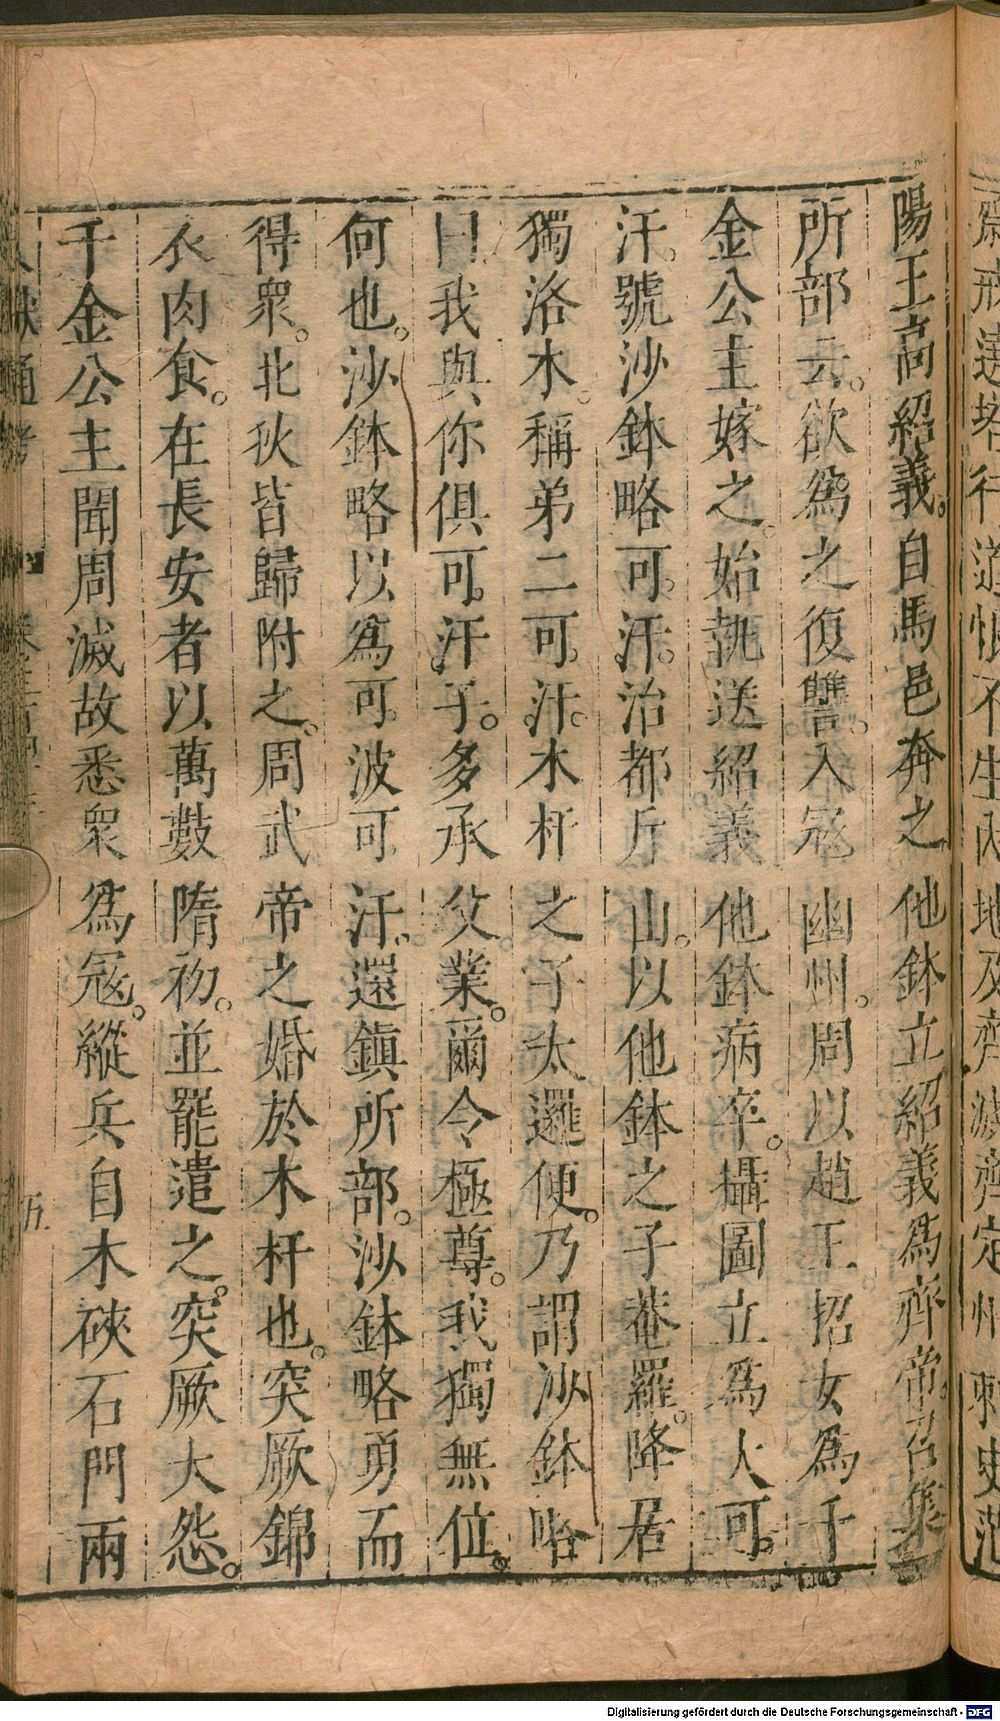 齋戒遶塔行道恨不生內地及齊滅齊定州刺史范
陽王高紹義。自馬邑奔之他鉢立紹義爲齊帝。召集
所部云。欲爲之復讐。入寇幽州。周以趙王招女爲千
金公主嫁之。始執送紹義他鉢病卒。攝圖立爲大可。
汗。號沙鉢略可。汗。治都斤山。以他鉢之子菴羅。降居
獨洛水。稱弟二可。汗。木杆之子大邏便。乃謂沙鉢咯
曰我與你俱可。汗。子。多承父業。爾令極尊。我獨無位。
何也。沙鉢略以爲可波可汗。還鎮所部。沙鉢略勇而
得衆。北狄皆歸附之。周武帝之婚於木杆也。突厥錦
衣肉食。在長安者以萬數隋初。並罷遣之。突厥大怨。
千金公主聞周滅故悉衆爲寇。縱兵自木硤石門兩
獻通考
五
Digitalisierung gefördert durch die Deutsche Forschungsgemeinschaft - DFG